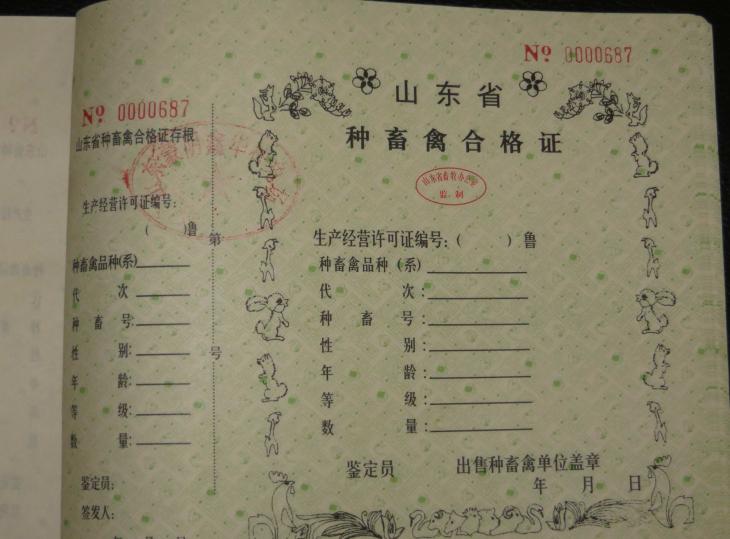 № 0000687
山东省种畜禽合格证存根
生产经营许可证编号:
( )鲁
种畜禽品种(系)
代 次
种 畜 号:
性 别:
年 龄:
等 级:
数 量:
鉴定员:
签发人:
年 月 日
第
号
№ 0000687
山东省
种畜禽合格证
山东省畜牧办公室
监 制
生产经营许可证编号:( )鲁
种畜禽品种(系)
代 次:
种 畜 号:
性 别:
年 龄:
等 级:
数 量:
鉴定员 出售种畜禽单位盖章
年 月 日